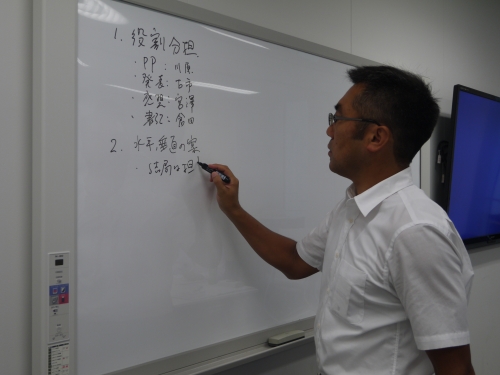 1. 役割分担
・PP:川原
・発表:古市
・感想:宮澤
・書記:倉田
2. 水平垂直の案
・結局は担